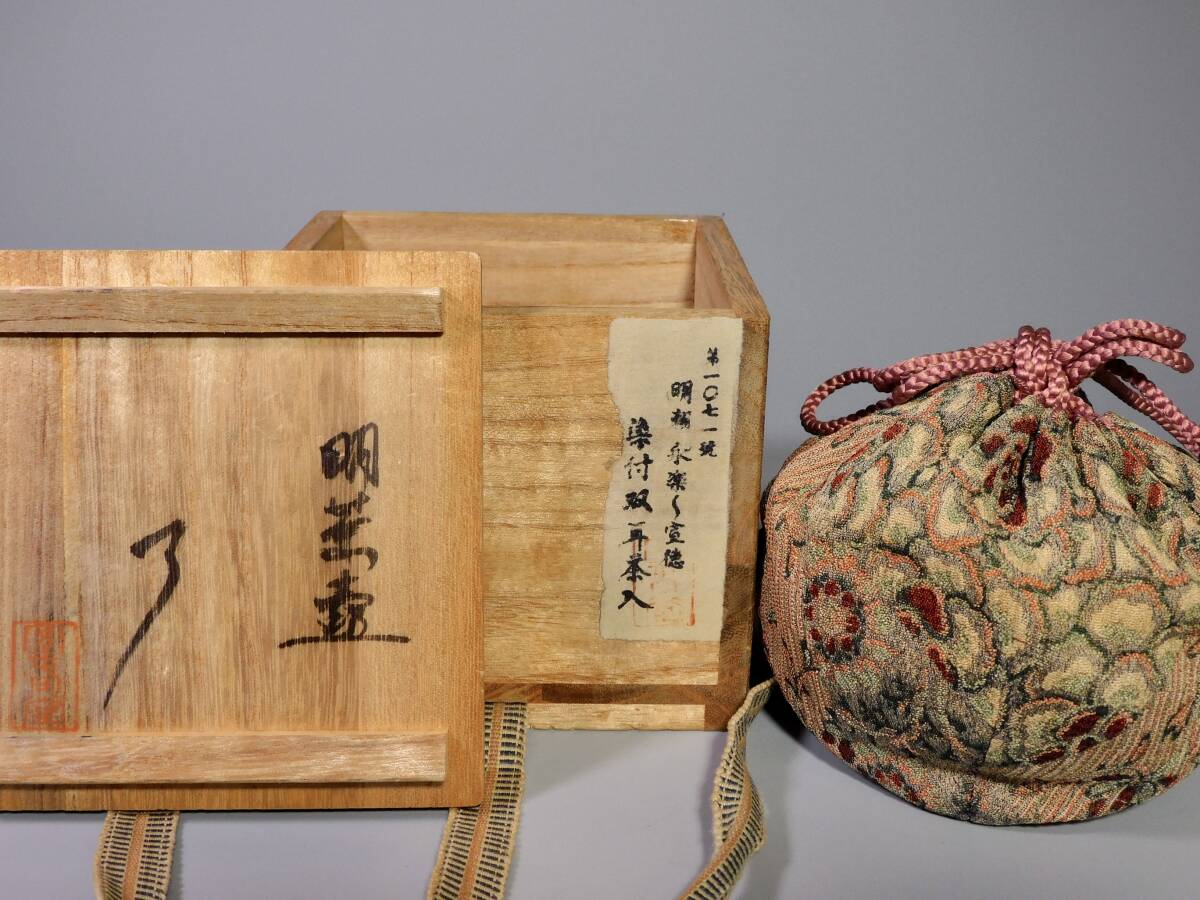 第一〇七一號
明初 永楽〜宣徳
染付双耳茶入
明茶壷
了